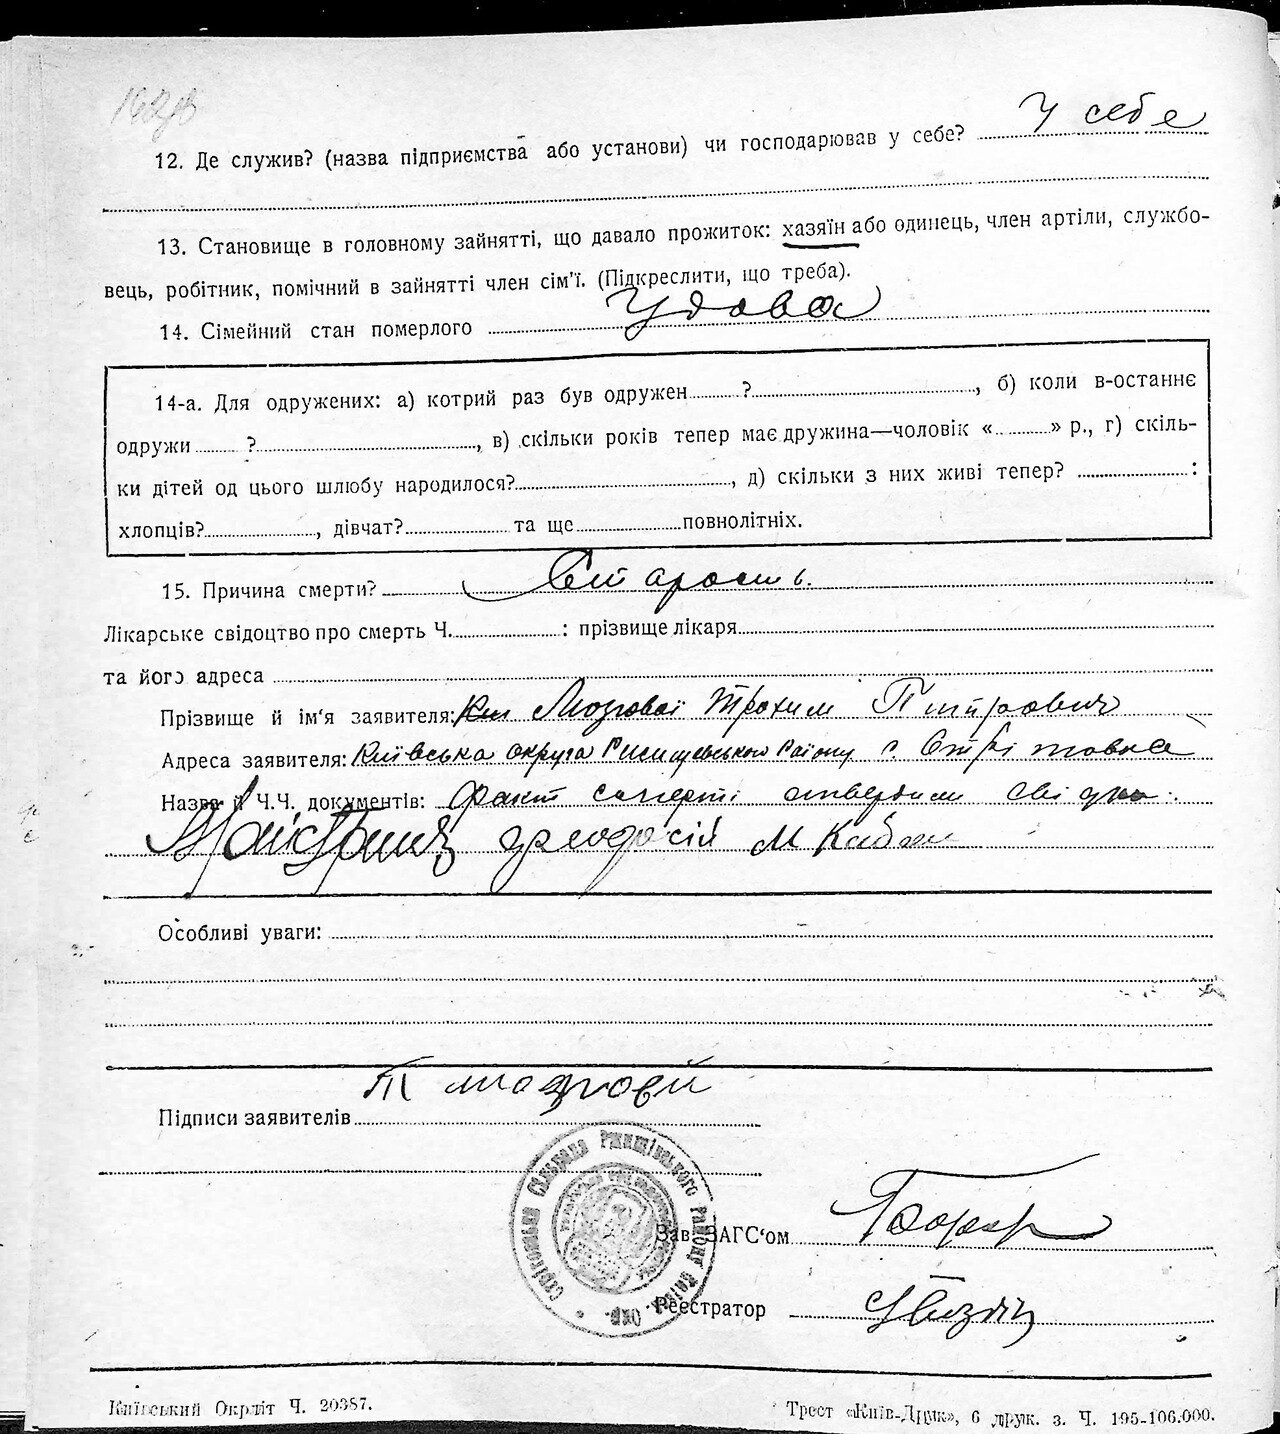 У себе
12. Де служив? (назва підприємства або установи) чи господарював у себе?
13. Становище в головному зайнятті, що давало прожиток: хазяїн або одинець, член артіли, службо-
вець, робітник, помічний в зайнятті член сім'ї. (Підкреслити, що треба).
14. Сімейний стан померлого Удова
14-а. Для одружених: а) котрий раз був одружен ? , б) коли в-останнє
одружи ? , в) скільки років тепер має дружина—чоловік « » р., г) скіль-
ки дітей од цього шлюбу народилося? , д) скільки з них живі тепер? :
хлопців? , дівчат? та ще повнолітніх.
15. Причина смерти? Старость.
Лікарське свідоцтво про смерть Ч. : прізвище лікаря
та його адреса
Прізвище й ім'я заявителя: Мозговой Трохим Питрович
Адреса заявителя: Київська округа Ржищевського Району с.
Назва й Ч.Ч. документів: факт смерті свідки
Феодосій М Кабан
Особливі уваги:
Т мозговій
Підписи заявителів
Сільрада Ржищівського Району Київ. Окр.
Зав. ЗАГС'ом
Реєстратор
Київський Окрліт Ч. 20387.
Трест «Київ-Друк», 6 друк. з. Ч. 195-106.000.